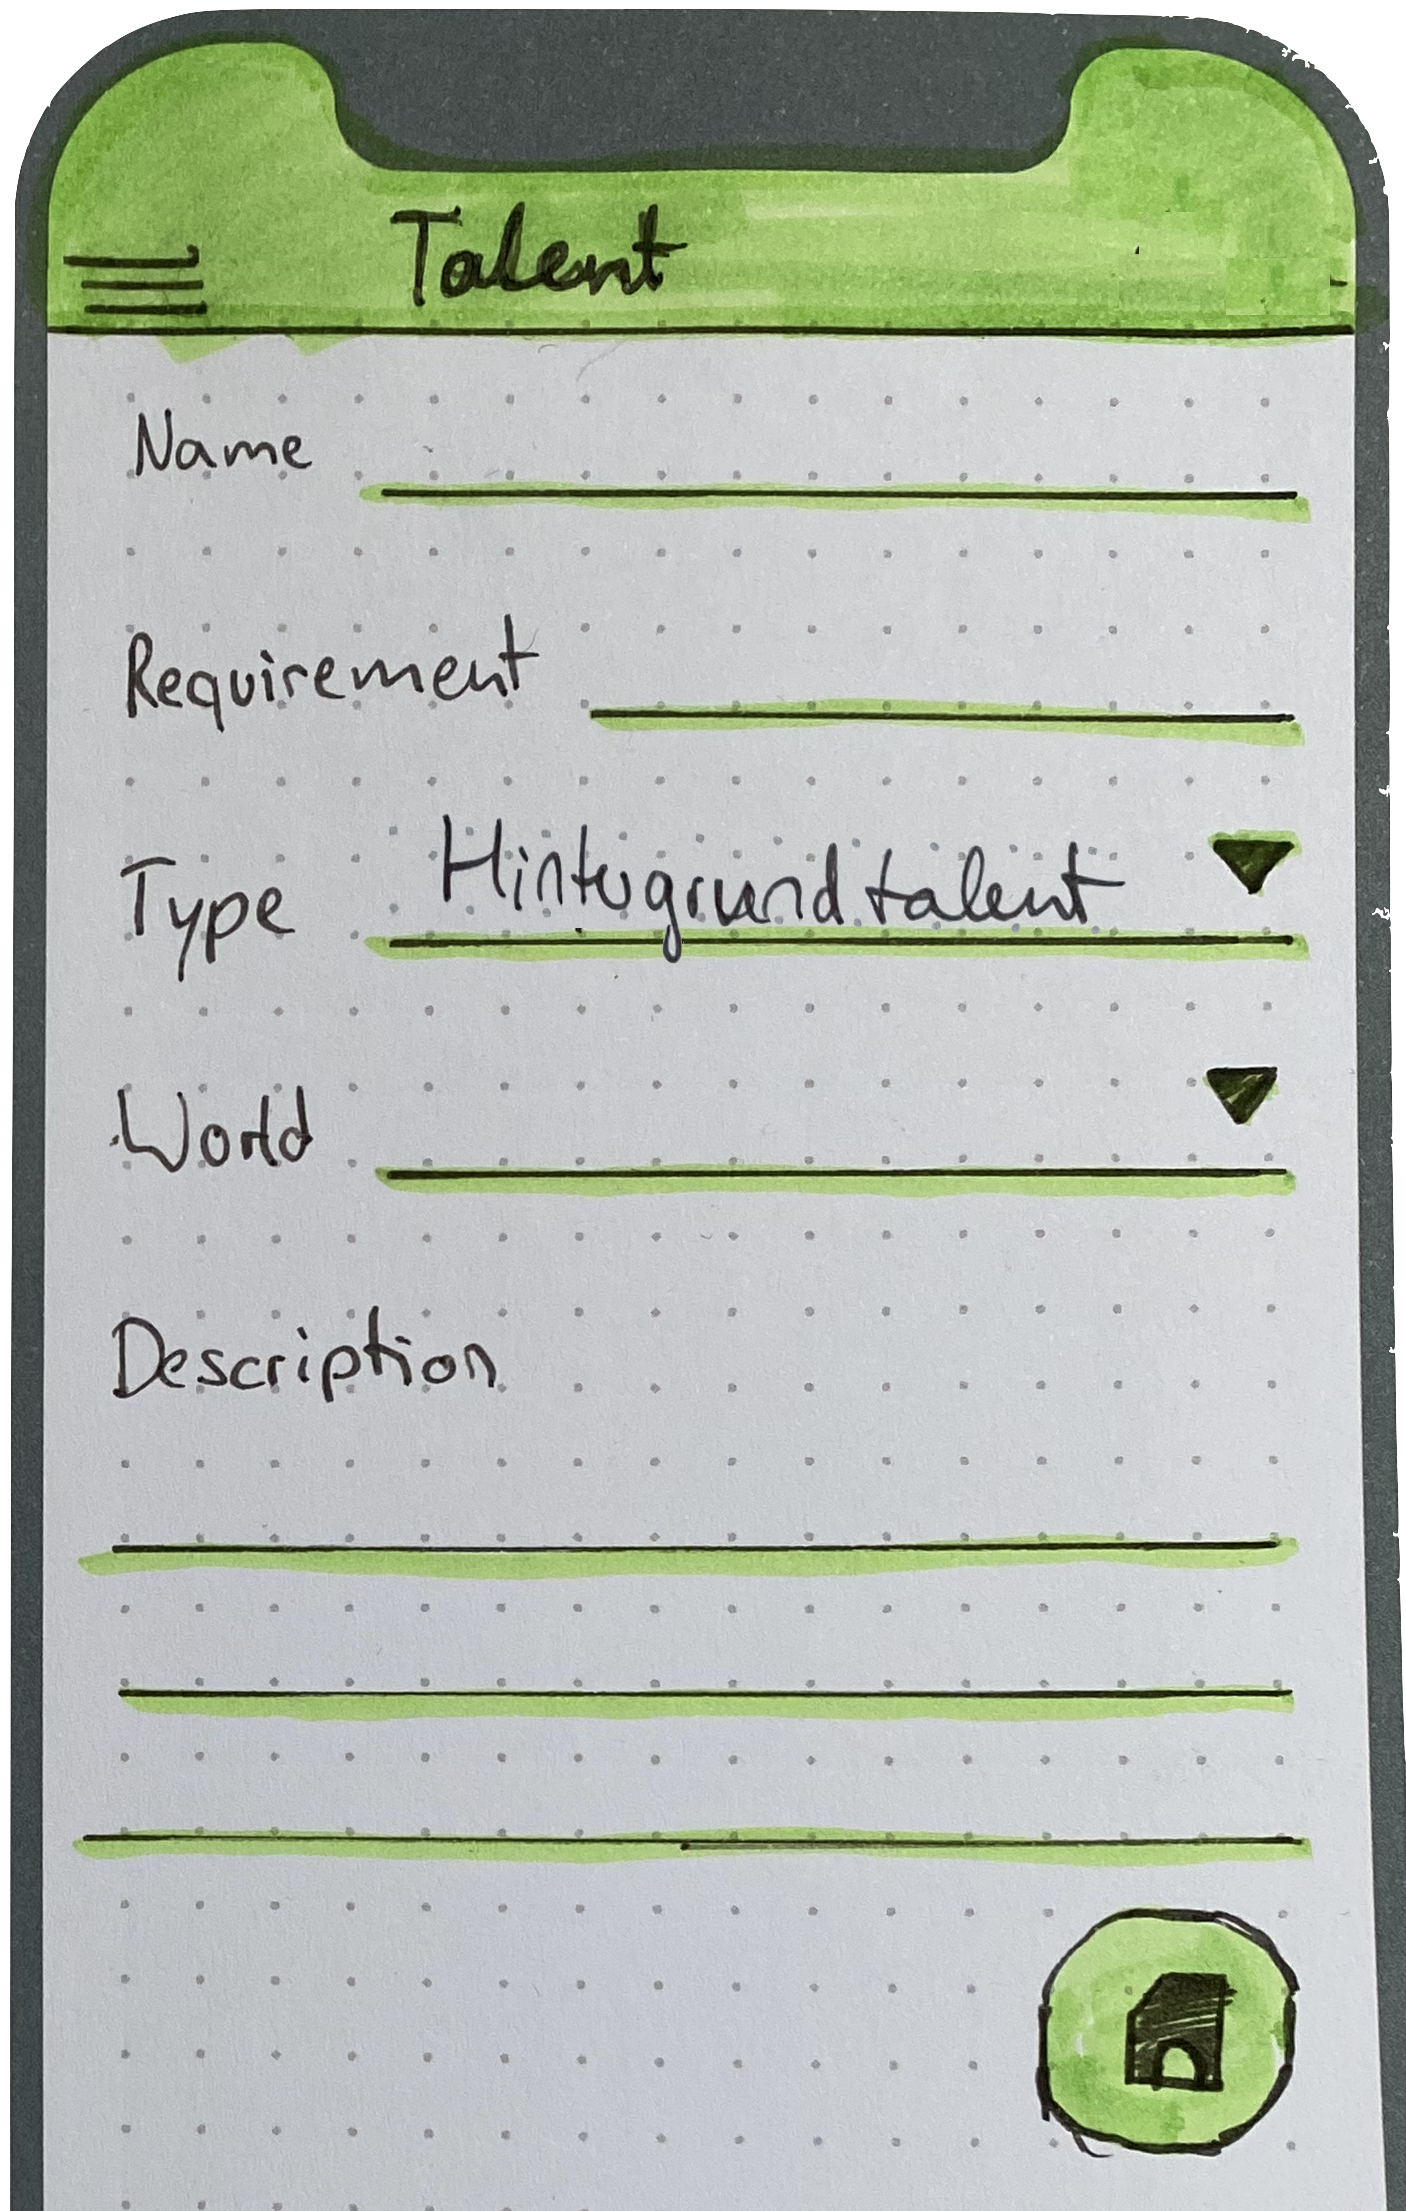 Talent
Name
Requirement
Type Hintergrundtalent
World
Description